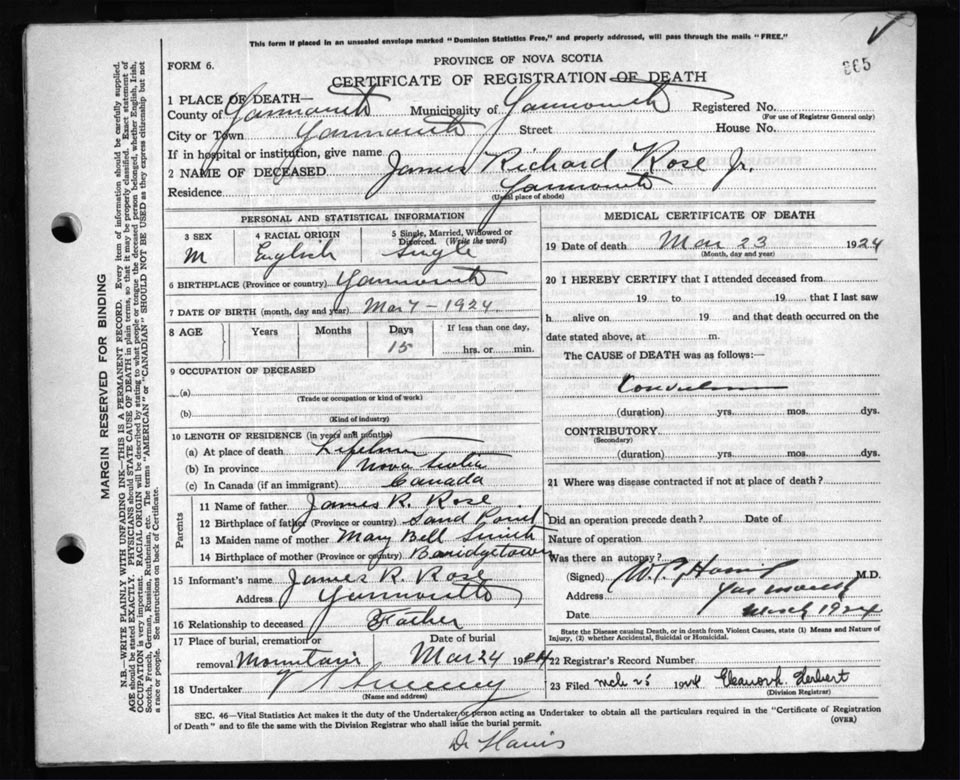 This form if placed in an unsealed envelope marked "Dominion Statistics Free," and properly addressed, will pass through the mails "FREE."
865
FORM 6.
PROVINCE OF NOVA SCOTIA
CERTIFICATE OF REGISTRATION OF DEATH
1 PLACE OF DEATH—
County of Yarmouth Municipality of Yarmouth Registered No.
(For use of Registrar General only)
City or Town Yarmouth Street House No.
If in hospital or institution, give name
2 NAME OF DECEASED James Richard Rose Jr.
Residence Yarmouth
(Usual place of abode)
PERSONAL AND STATISTICAL INFORMATION
3 SEX
M
4 RACIAL ORIGIN
English
5 Single, Married, Widowed or Divorced. (Write the word)
Single
6 BIRTHPLACE (Province or country) Yarmouth
7 DATE OF BIRTH (month, day and year) Mar 7 - 1924
8 AGE Years Months Days If less than one day,
15 hrs. or min.
9 OCCUPATION OF DECEASED
(a)
(Trade or occupation or kind of work)
(b)
(Kind of industry)
10 LENGTH OF RESIDENCE (in years and months)
(a) At place of death Lifetime
(b) In province Nova Scotia
(c) In Canada (if an immigrant) Canada
Parents
11 Name of father James R. Rose
12 Birthplace of father (Province or country) Sand Point
13 Maiden name of mother Mary Bell Smith
14 Birthplace of mother (Province or country) Baridgetown
15 Informant's name James R. Rose
Address Yarmouth
16 Relationship to deceased Father
17 Place of burial, cremation or removal Mountain
Date of burial Mar 24 1924
18 Undertaker V S Sweeney
(Name and address)
MEDICAL CERTIFICATE OF DEATH
19 Date of death Mar 23 1924
(Month, day and year)
20 I HEREBY CERTIFY that I attended deceased from
19 to 19 that I last saw
h alive on 19 and that death occurred on the
date stated above, at m.
The CAUSE of DEATH was as follows:—
Convulsions
(duration) yrs. mos. dys.
CONTRIBUTORY
(Secondary)
(duration) yrs. mos. dys.
21 Where was disease contracted if not at place of death?
Did an operation precede death? Date of
Nature of operation
Was there an autopsy?
(Signed) M.D.
Address Yarmouth
Date March 1924
State the Disease causing Death, or in death from Violent Causes, state (1) Means and Nature of
Injury, (2) whether Accidental, Suicidal or Homicidal.
22 Registrar's Record Number
23 Filed mch 25 1924 Eleanor h. Herbert
(Division Registrar)
SEC. 46—Vital Statistics Act makes it the duty of the Undertaker or person acting as Undertaker to obtain all the particulars required in the "Certificate of Registration
of Death" and to file the same with the Division Registrar who shall issue the burial permit.
(OVER)
Dr Harris
MARGIN RESERVED FOR BINDING
N.B.—WRITE PLAINLY WITH UNFADING INK—THIS IS A PERMANENT RECORD. Every item of information should be carefully supplied.
AGE should be stated EXACTLY. PHYSICIANS should STATE CAUSE OF DEATH in plain terms, so that it may be properly classified. Exact statement of
OCCUPATION is very important. RACIAL ORIGIN will be described by stating to what people or tongue the deceased person belonged, whether English, Irish,
Scotch, French, German, Russian, Ruthenian, etc. The terms "AMERICAN" or "CANADIAN" SHOULD NOT BE USED as they express citizenship but not
a race or people. See instructions on back of Certificate.